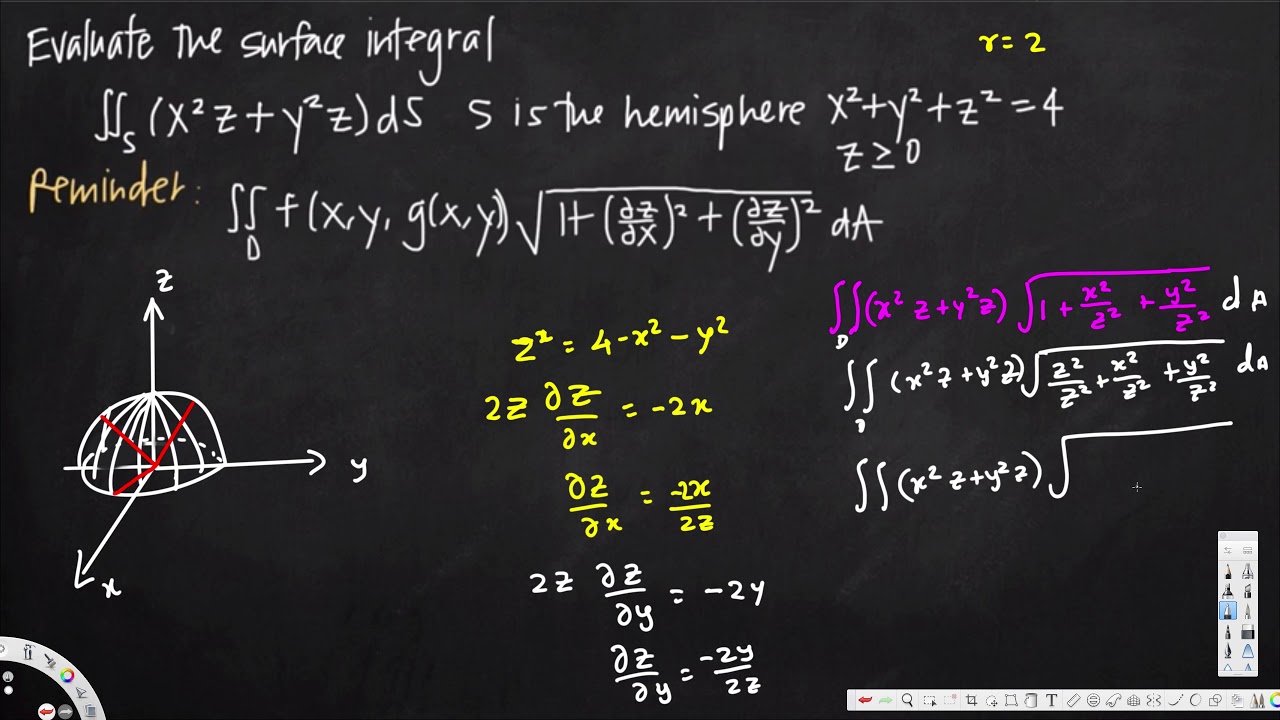 Evaluate the surface integral
r = 2
∬_S (x²z + y²z) dS S is the hemisphere x² + y² + z² = 4
z ≥ 0
Reminder:
∬_D f(x, y, g(x, y)) √(1 + (∂z/∂x)² + (∂z/∂y)²) dA
z
y
x
z² = 4 - x² - y²
2z ∂z/∂x = -2x
∂z/∂x = -2x/2z
2z ∂z/∂y = -2y
∂z/∂y = -2y/2z
∬_D (x² z + y² z) √(1 + x²/z² + y²/z²) dA
∬_D (x² z + y² z) √(z²/z² + x²/z² + y²/z²) dA
∬ (x² z + y² z) √
T